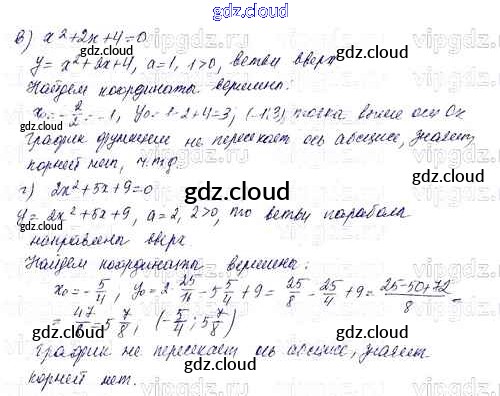 gdz.cloud
в) x²+2x+4=0
y = x²+2x+4, a=1, 1>0, ветви вверх
Найдем координаты вершины:
x₀=-2/2=-1, y₀=1-2+4=3, (-1;3) точка выше оси Ox
График функции не пересекает ось абсцисс, значит,
корней нет, ч.т.д.
г) 2x²+5x+9=0
y=2x²+5x+9, a=2, 2>0, то ветви параболы
направлены вверх.
Найдем координаты вершины:
x₀=-5/4, y₀=2·25/16-5·5/4+9=25/8-25/4+9=(25-50+72)/8=
=47/8=5 7/8, (-5/4; 5 7/8)
График не пересекает ось абсцисс, значит
корней нет.
gdz.cloud